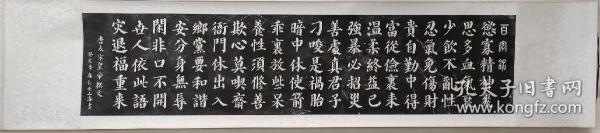 百字銘
慾寡精神爽
思多血氣衰
少飲不亂性
忍氣免傷財
貴自勤中得
富從儉裏來
溫柔終益己
強暴必招災
善處真君子
刁唆是禍胎
暗中休使箭
乖裏放些呆
養性須修善
欺心莫喫齋
衙門休出入
鄉黨要和諧
安分身無辱
閑非口不開
世人依此語
灾退福重來
唐太宗皇帝撰文
孔夫子旧书网